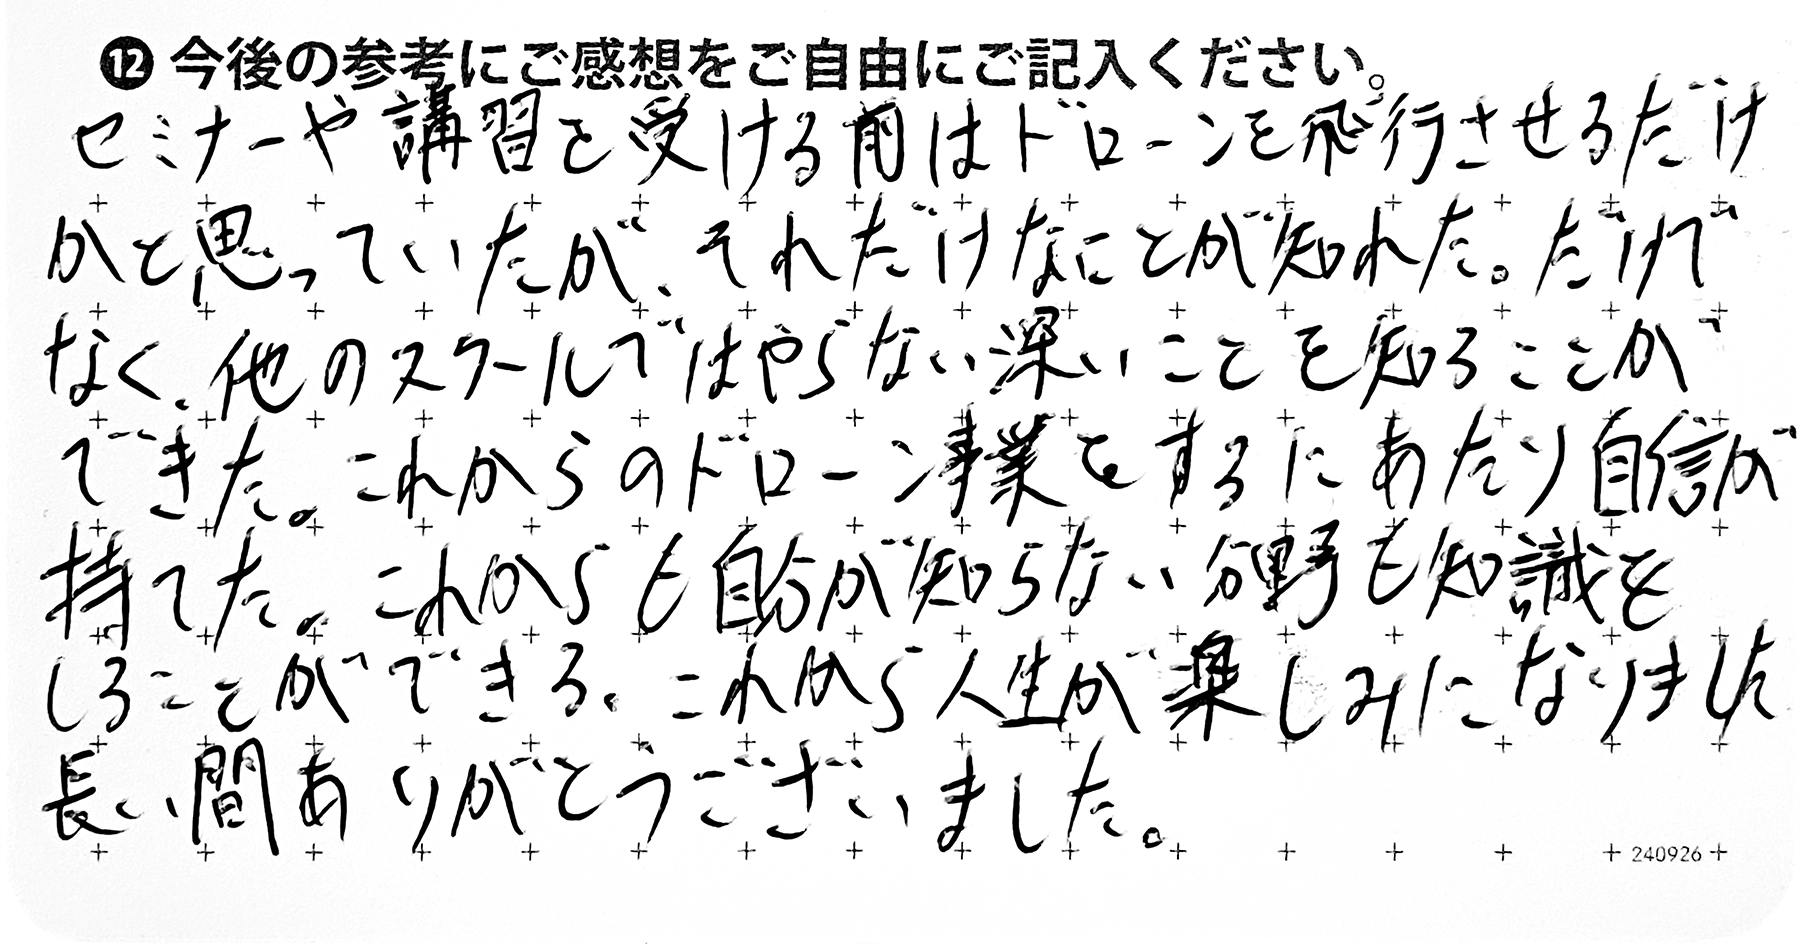 ⓬今後の参考にご感想をご自由にご記入ください。
セミナーや講習を受ける前はドローンを飛行させるだけ
かと思っていたが、それだけなことが知れた。だけで
なく、他のスクールではやらない深いことを知ることが
できた。これからのドローン事業をするにあたり自信が
持てた。これからも自分が知らない分野も知識を
しることができる。これから人生が楽しみになりました
長い間ありがとうございました。
240926